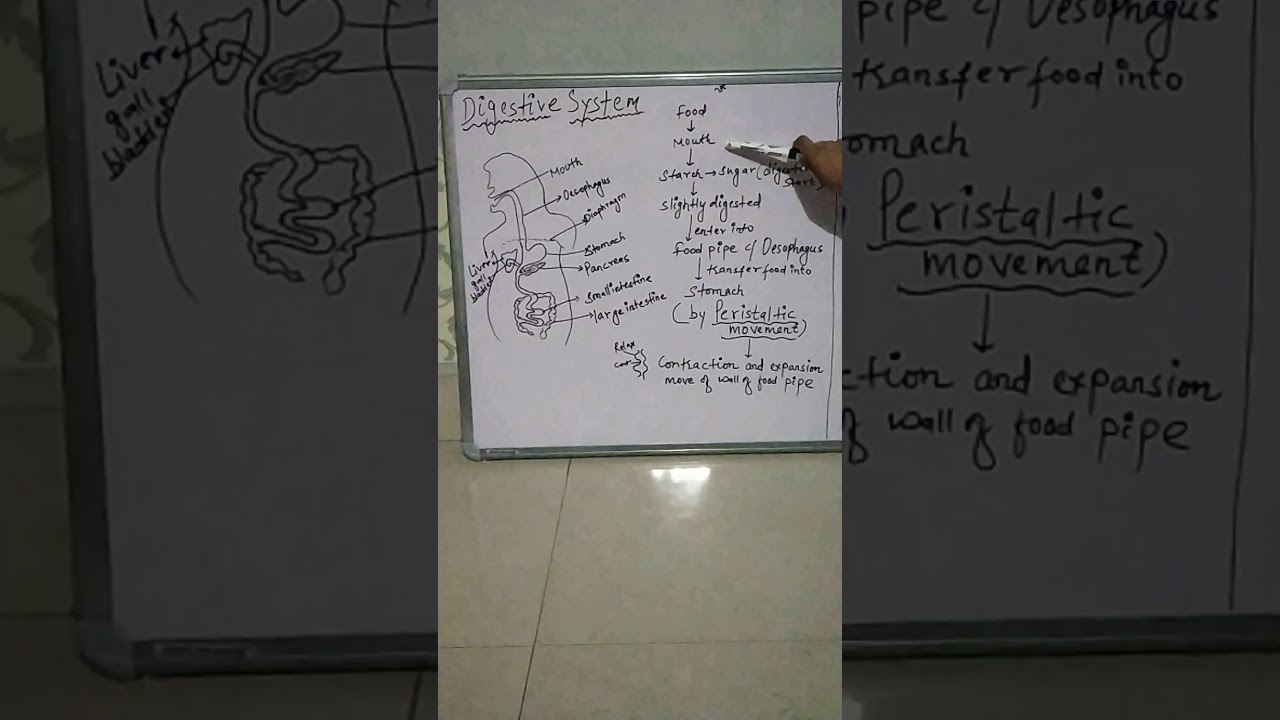 Digestive System
Mouth
Oesophagus
Diaphragm
Stomach
Pancreas
Small intestine
large intestine
Liver
gall
bladder
Food
Mouth
Starch → Sugar (digestion
start)
Slightly digested
enter into
Food pipe c/ Oesophagus
transfer food into
Stomach
(by Peristaltic
movement)
Relax
Contraction and expansion
move of wall of food pipe
Liver
gall
bladder
pipe c/ Oesophagus
transfer food into
omach
Peristaltic
movement)
ction and expansion
of wall of food pipe